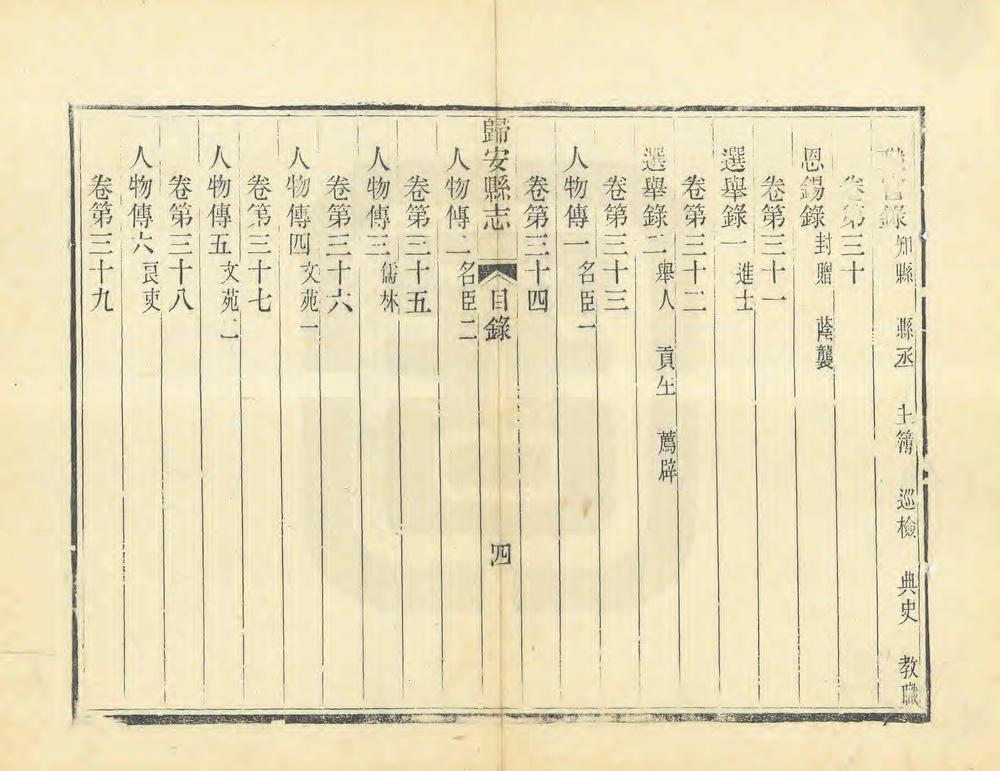 職官錄 知縣 縣丞 主簿 巡檢 典史 教職
卷第三十
恩錫錄 封贈 蔭襲
卷第三十一
選舉錄一 進士
卷第三十二
選舉錄二 舉人 貢生 薦辟
卷第三十三
人物傳一 名臣一
卷第三十四
歸安縣志 目錄 四
人物傳二 名臣二
卷第三十五
人物傳三 儒林
卷第三十六
人物傳四 文苑一
卷第三十七
人物傳五 文苑二
卷第三十八
人物傳六 良吏
卷第三十九